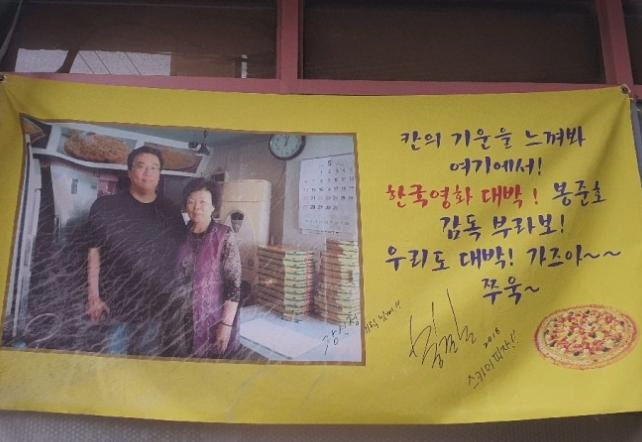 칸의 기운을 느껴봐
여기에서!
한국영화 대박! 봉준호
감독 부라보!
우리도 대박! 가즈아~~
쭈욱~
2018
스카이피자!!